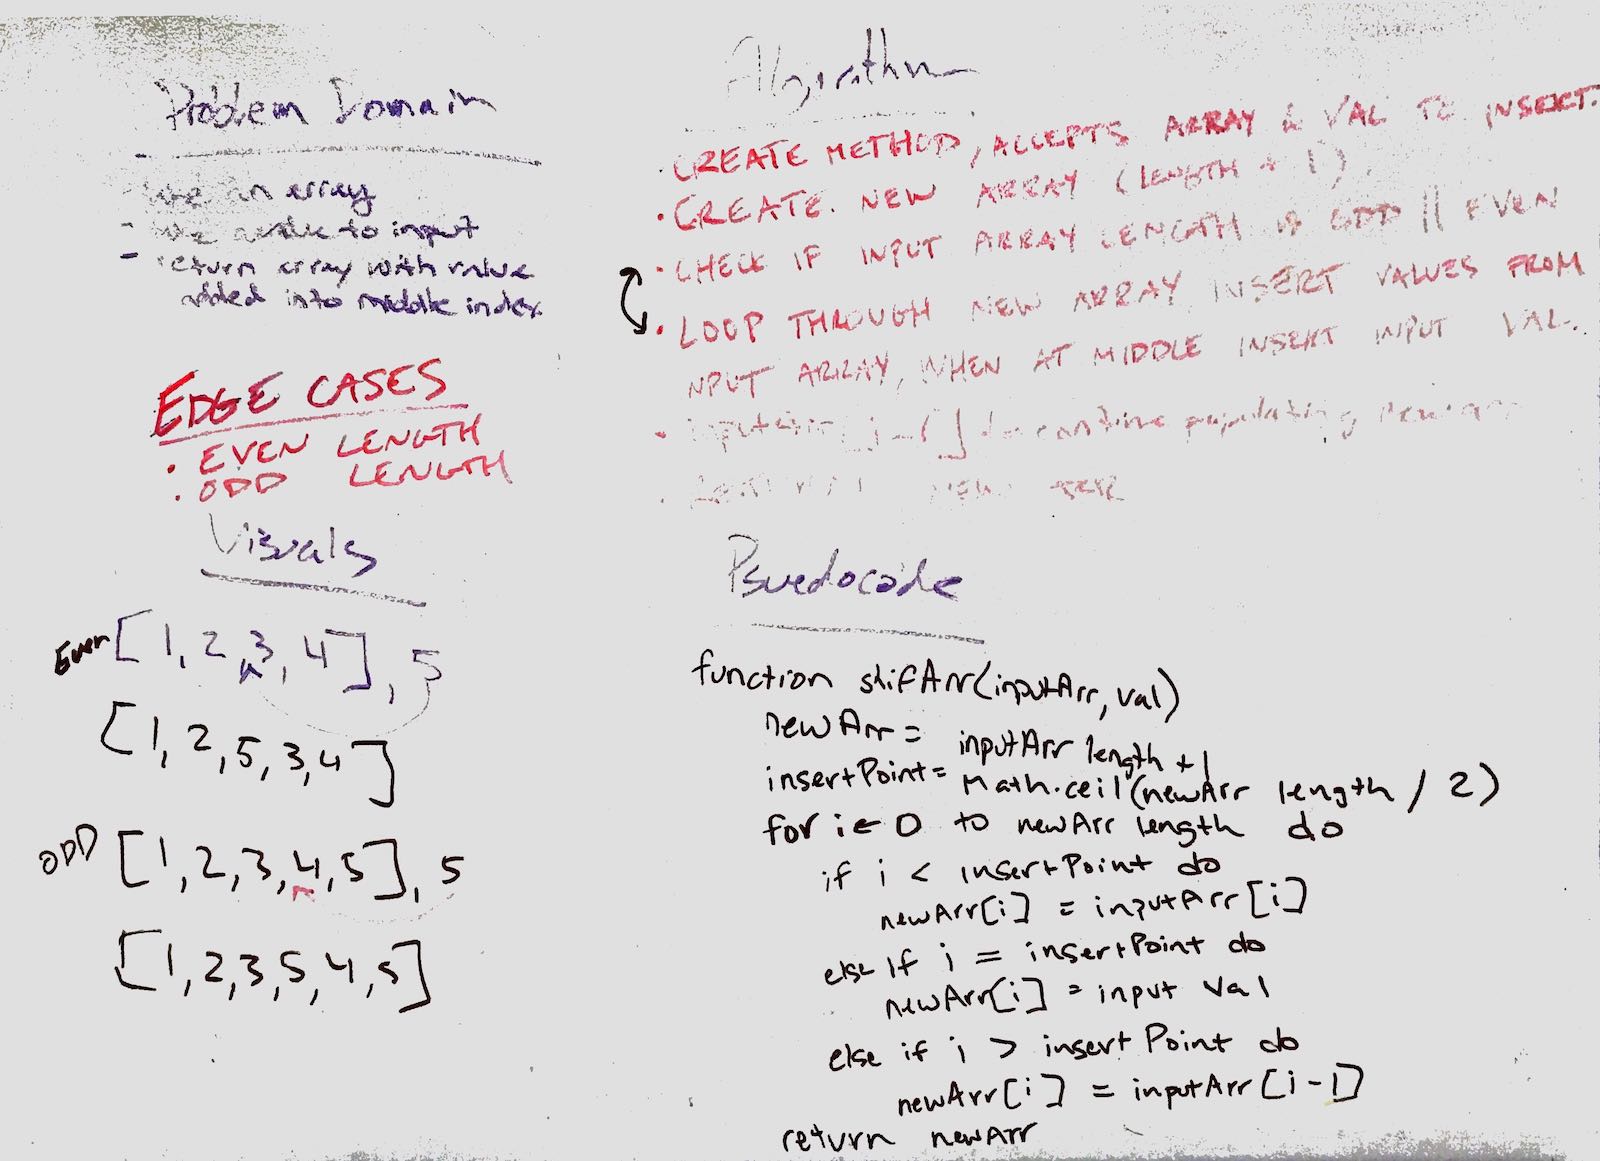 Problem Domain
an array
- to input
- return array with value
added into middle index
EDGE CASES
. EVEN LENGTH
. ODD LENGTH
Visuals
Even [1, 2, 3, 4], 5
[1, 2, 5, 3, 4]
ODD [1, 2, 3, 4, 5], 5
[1, 2, 3, 5, 4, 5]
Algorithm
. CREATE METHOD, ACCEPTS ARRAY & VAL TO INSERT.
. CREATE NEW ARRAY (LENGTH + 1).
. CHECK IF INPUT ARRAY LENGTH IS ODD || EVEN
. LOOP THROUGH NEW ARRAY INSERT VALUES FROM
INPUT ARRAY, WHEN AT MIDDLE INSERT INPUT VAL.
. [i-1] to continue populating new arr
. NEW ARR
Psuedocode
function shifArr(inputArr, val)
newArr = inputArr length + 1
insertPoint = Math.ceil(newArr length / 2)
for i ← 0 to newArr length do
if i < insertPoint do
newArr[i] = inputArr[i]
else if i = insertPoint do
newArr[i] = input val
else if i > insertPoint do
newArr[i] = inputArr[i-1]
return newArr